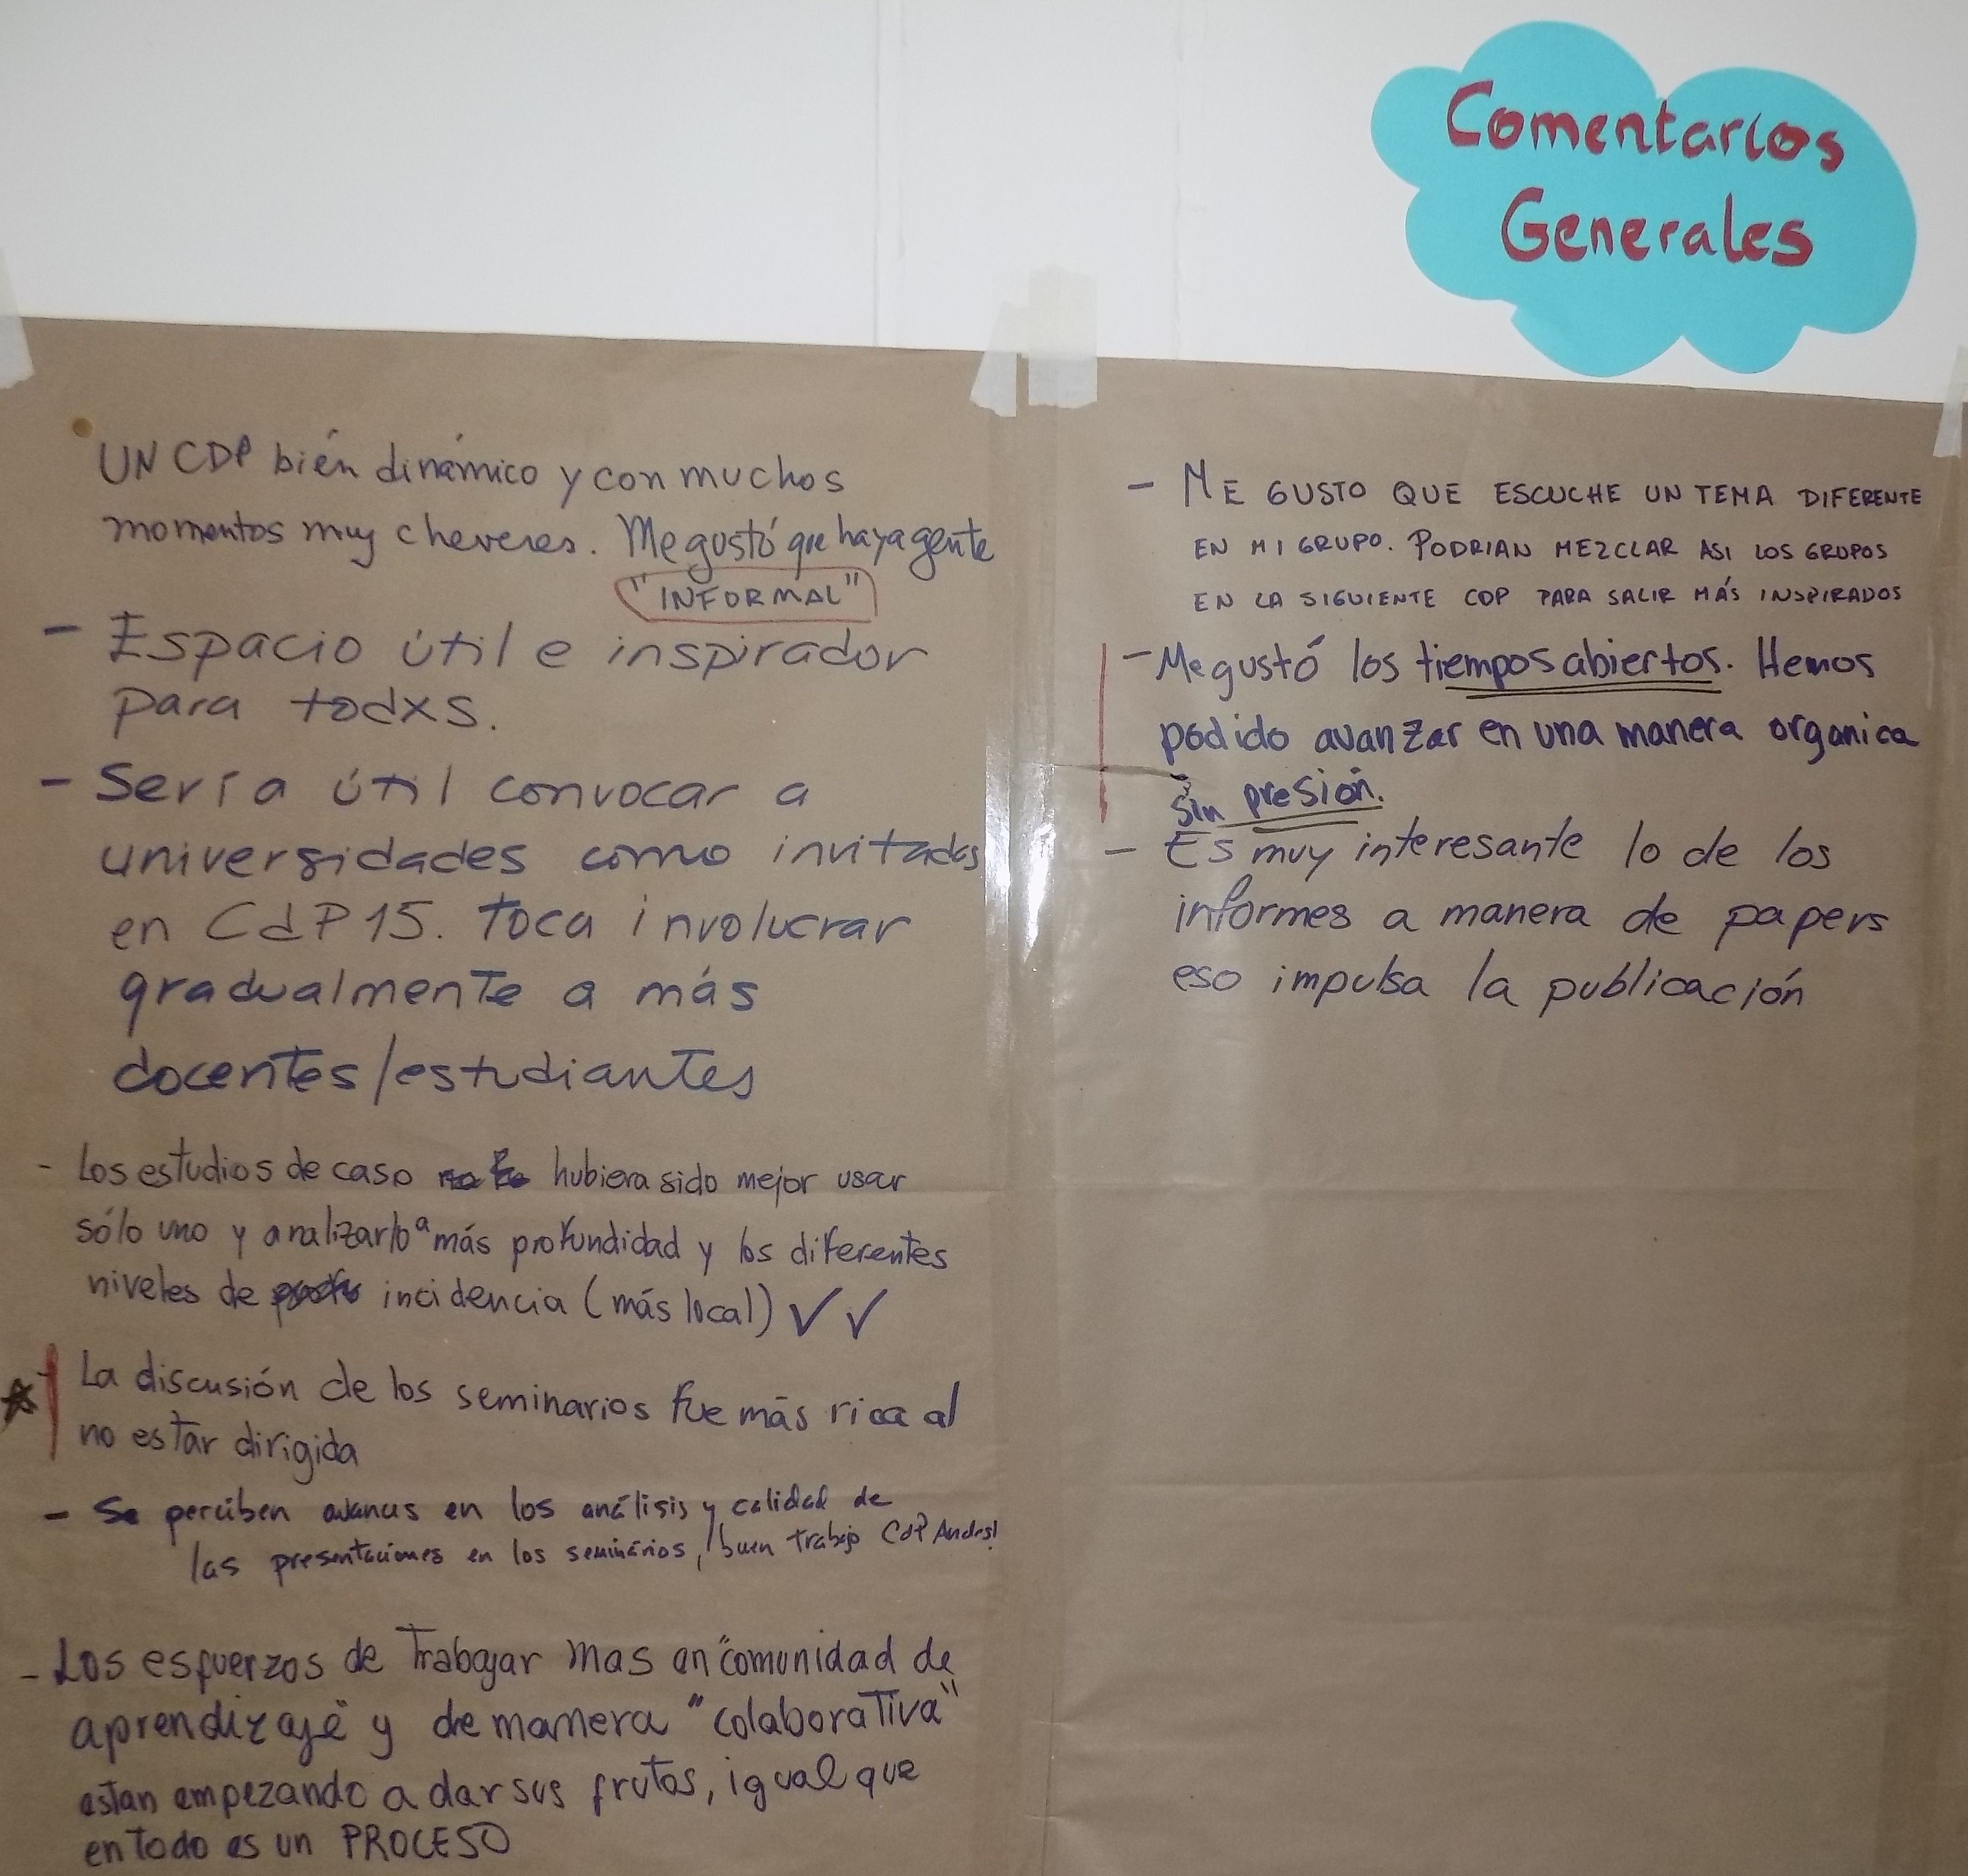 Comentarios
Generales
UN CDP bién dinámico y con muchos
momentos muy cheveres. Me gustó que haya gente
"INFORMAL"
- Espacio útil e inspirador
para todxs.
- Sería útil convocar a
universidades como invitados
en CdP15. Toca involucrar
gradualmente a más
docentes/estudiantes
- Los estudios de caso hubiera sido mejor usar
sólo uno y analizarlo a más profundidad y los diferentes
niveles de incidencia (más local) ✓✓
La discusión de los seminarios fue más rica al
no estar dirigida
- Se perciben avances en los análisis y calidad de
las presentaciones en los seminarios, buen trabajo CdP Andes!
- Los esfuerzos de Trabajar mas en "comunidad de
aprendizaje" y de manera "colaborativa"
estan empezando a dar sus frutos, igual que
en Todo es un PROCESO
- ME GUSTO QUE ESCUCHE UN TEMA DIFERENTE
EN MI GRUPO. PODRIAN MEZCLAR ASI LOS GRUPOS
EN LA SIGUIENTE CDP PARA SALIR MÁS INSPIRADOS
- Me gustó los tiempos abiertos. Hemos
podido avanzar en una manera organica
sin presión.
- Es muy interesante lo de los
informes a manera de papers
eso impulsa la publicación